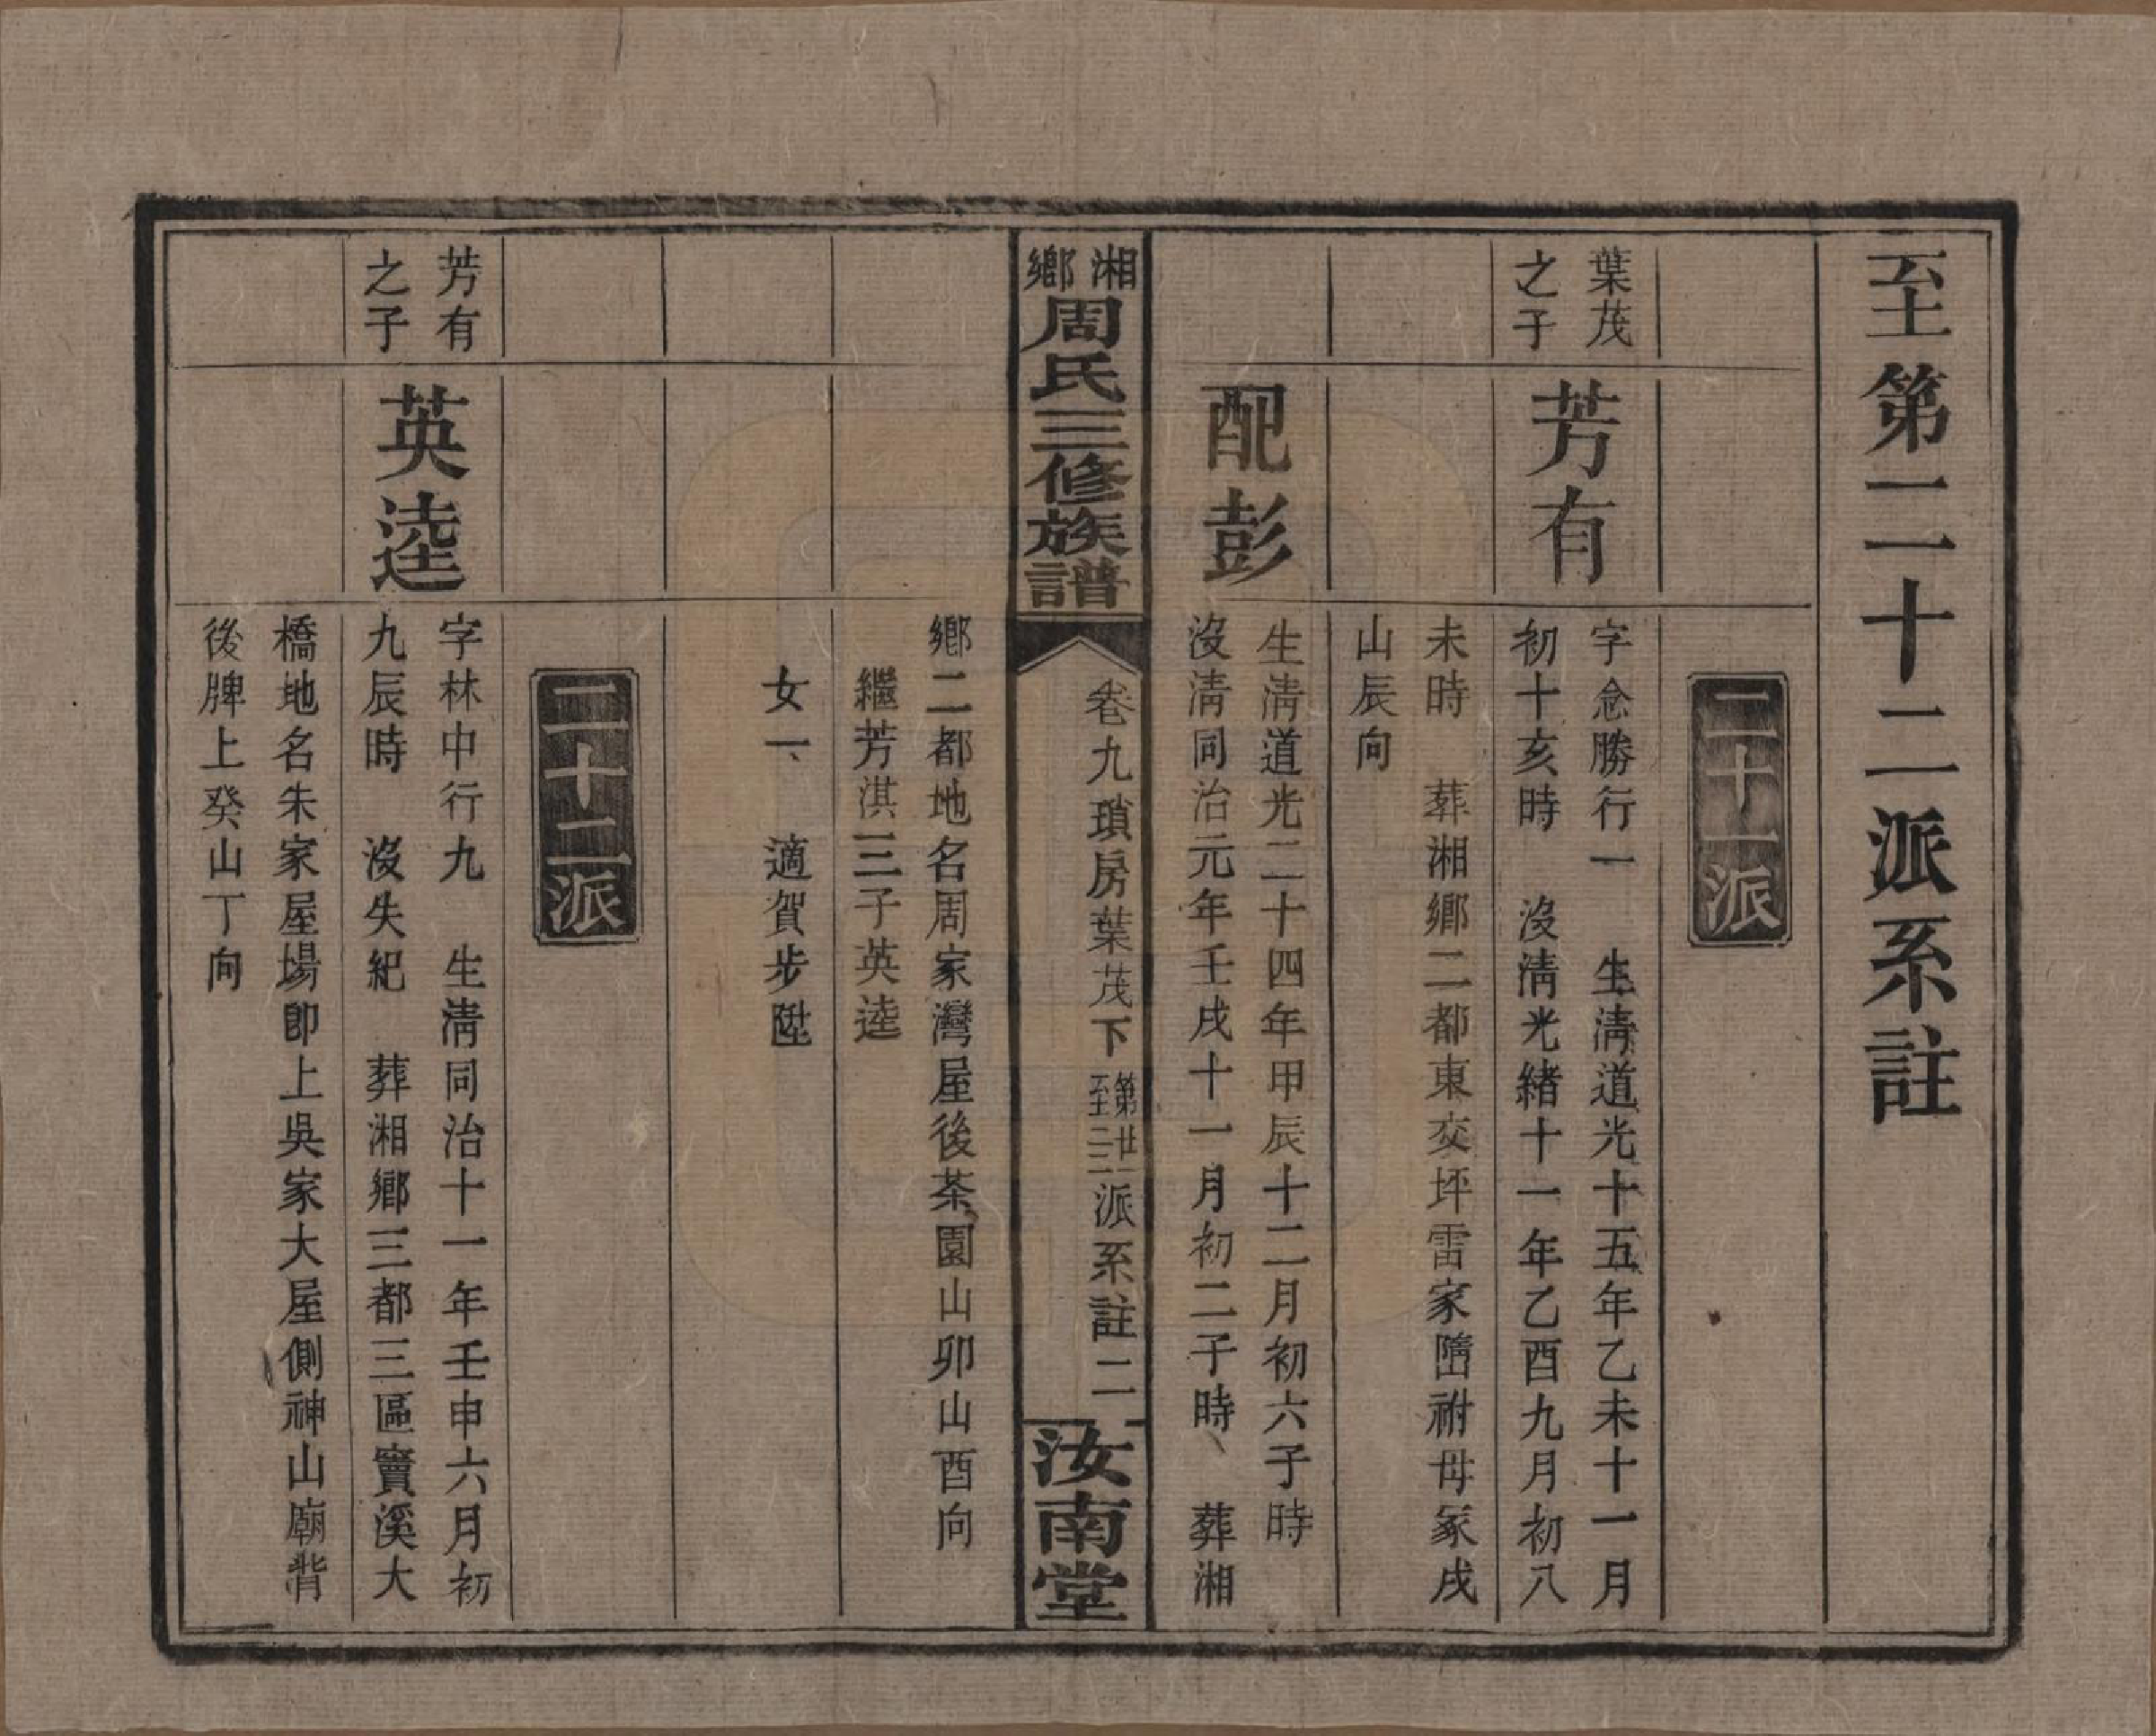 至第二十二派系註
二十一派
葉茂
之子
芳有
字念勝行一　生清道光十五年乙未十一月
初十亥時　沒清光緒十一年乙酉九月初八
未時　葬湘鄉二都東交坪雷家㙮祔母冢戌
山辰向
配彭
生清道光二十四年甲辰十二月初六子時
沒清同治元年壬戌十一月初二子時　葬湘
湘鄉周氏三修族譜
卷九瑣房葉茂下第廿一至二二派系註　二
汝南堂
鄉二都地名周家灣屋後茶園山卯山酉向
繼芳淇三子英逵
女一　適賀步陞
二十二派
芳有
之子
英逵
字林中行九　生清同治十一年壬申六月初
九辰時　沒失紀　葬湘鄉三都三區竇溪大
橋地名朱家屋場卽上吳家大屋側神山廟背
後牌上癸山丁向